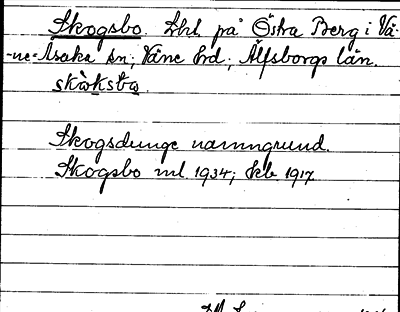 Skogsbo. Lht. på Östra Berg i Vä-
ne-Åsaka sn; Väne hd; Älfsborgs län.
skɷ̀ksbɷ
Skogsdunge namngrund.
Skogsbo ml 1934; kb 1917